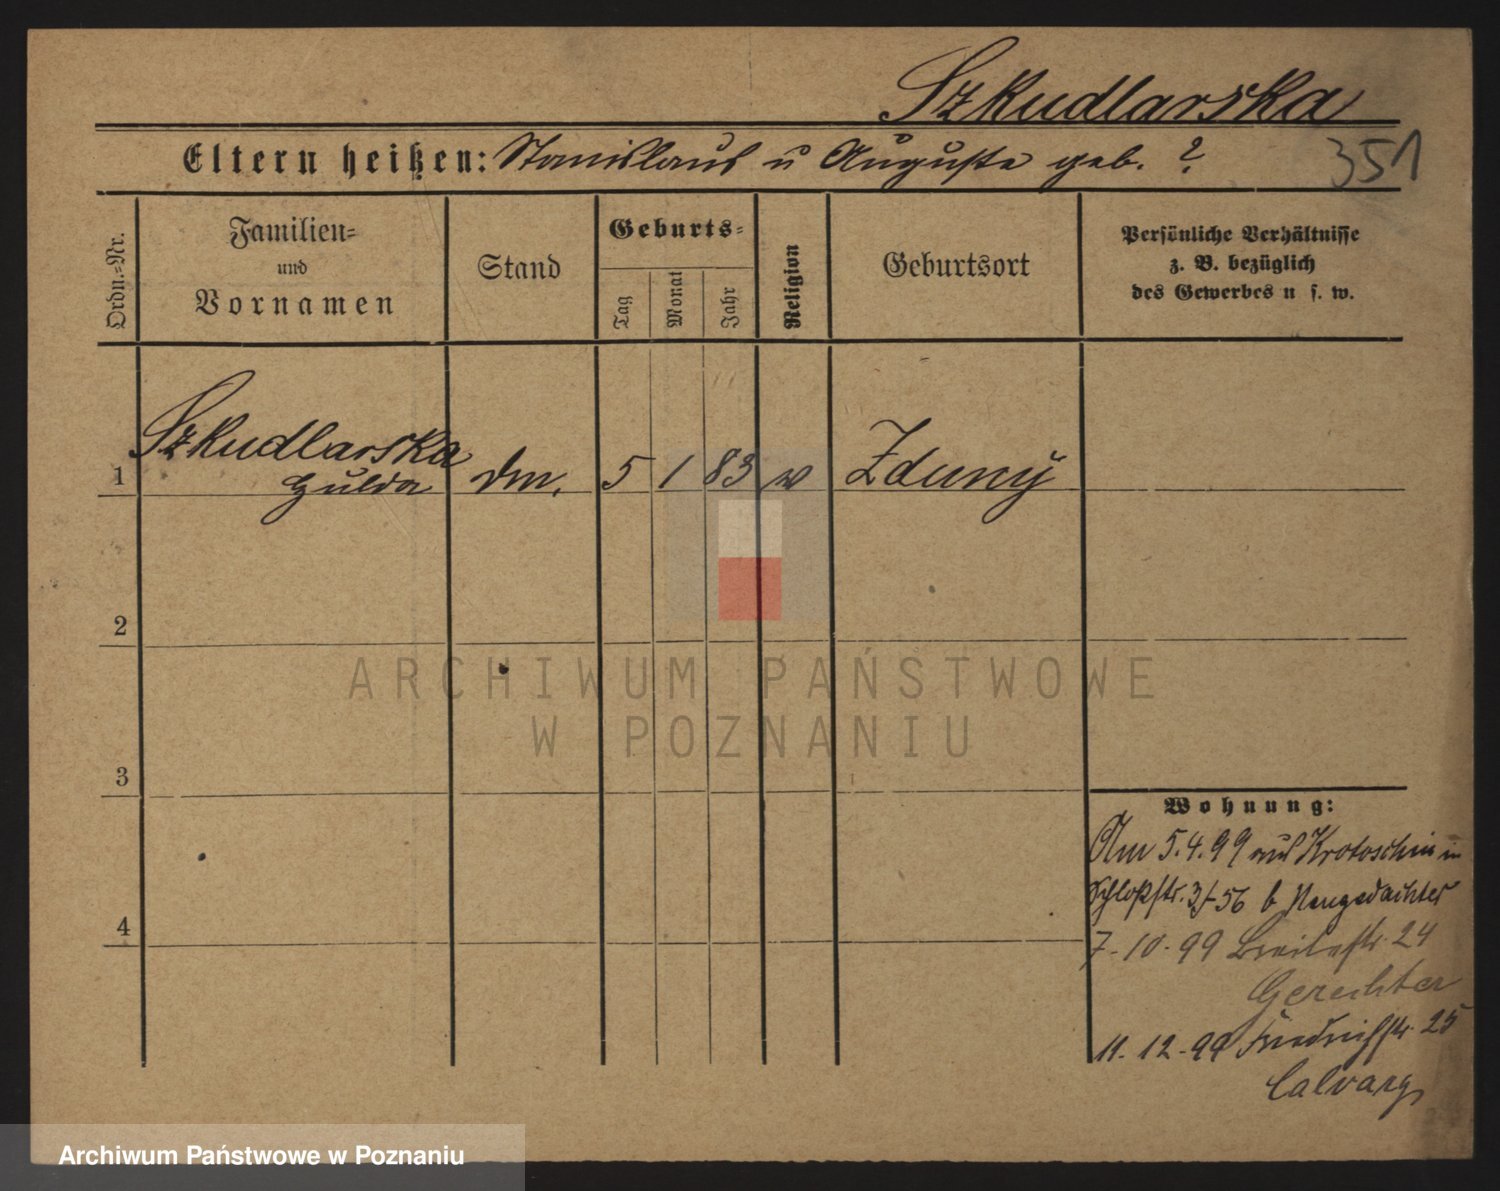 Szkudlarska
Eltern heißen: Stanislaus u Auguste geb. ?
351
Ordn.-Nr.
Familien-
und
Vornamen
Stand
Geburts-
Tag
Monat
Jahr
Religion
Geburtsort
Persönliche Verhältnisse
z. B. bezüglich
des Gewerbes u s. w.
1
Szkudlarska
Hulda
dm.
5
1
83
Zduny
2
3
4
Wohnung:
Am 5.4.99 aus Krotoschin in
Schloßstr. 3 56 b
7-10-99 Breitestr. 24
Gerechter
11-12-99 Friedrichstr. 25
Calvary
ARCHIWUM PAŃSTWOWE
W POZNANIU
Archiwum Państwowe w Poznaniu